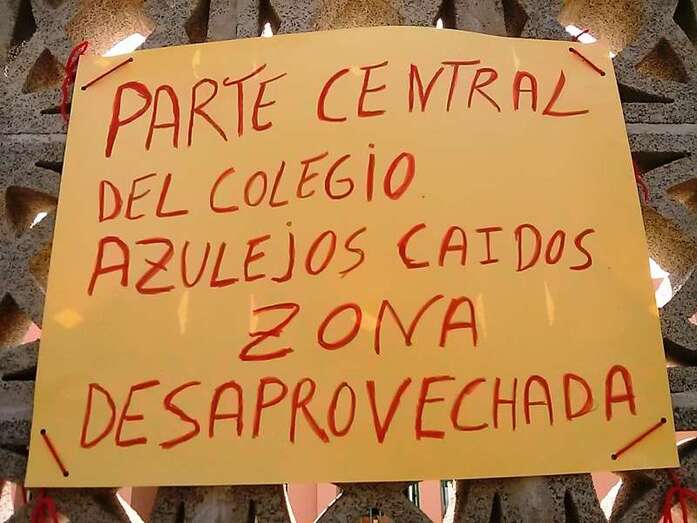 PARTE CENTRAL
DEL COLEGIO
AZULEJOS CAIDOS
ZONA
DESAPROVECHADA